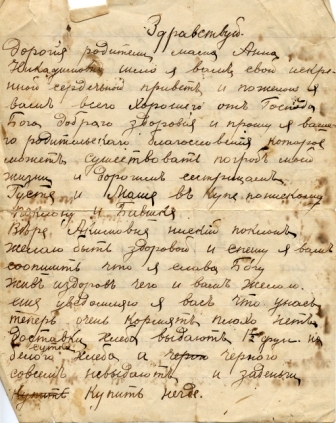 Здравствуй.
Дорогія родители, мама Анна
шлю я вамъ свой искре-
нной сердечной приветъ и пожелаю я
вамъ всего хорошего отъ Господа
Бога добраго здоровия и прошу я ваше
го родительскаго благословения которое
можетъ сушествовать погробъ моей
жизни и дорогимъ сестрицамъ
Густя и въ купе понискому
поклону и
нискій поклонъ
желаю быть здоровой и спешу я вамъ
сообщить что я слава Богу
живъ издоровъ чего и вамъ желаю.
еше уведомляю я васъ что унасъ
теперь очень кормятъ плохо нетъ
доставки хлеба выдаютъ 1½ фун. на
сутки
белого хлеба а черон черного
совсемъ невыдаютъ и заденьги
купить Купить негде.